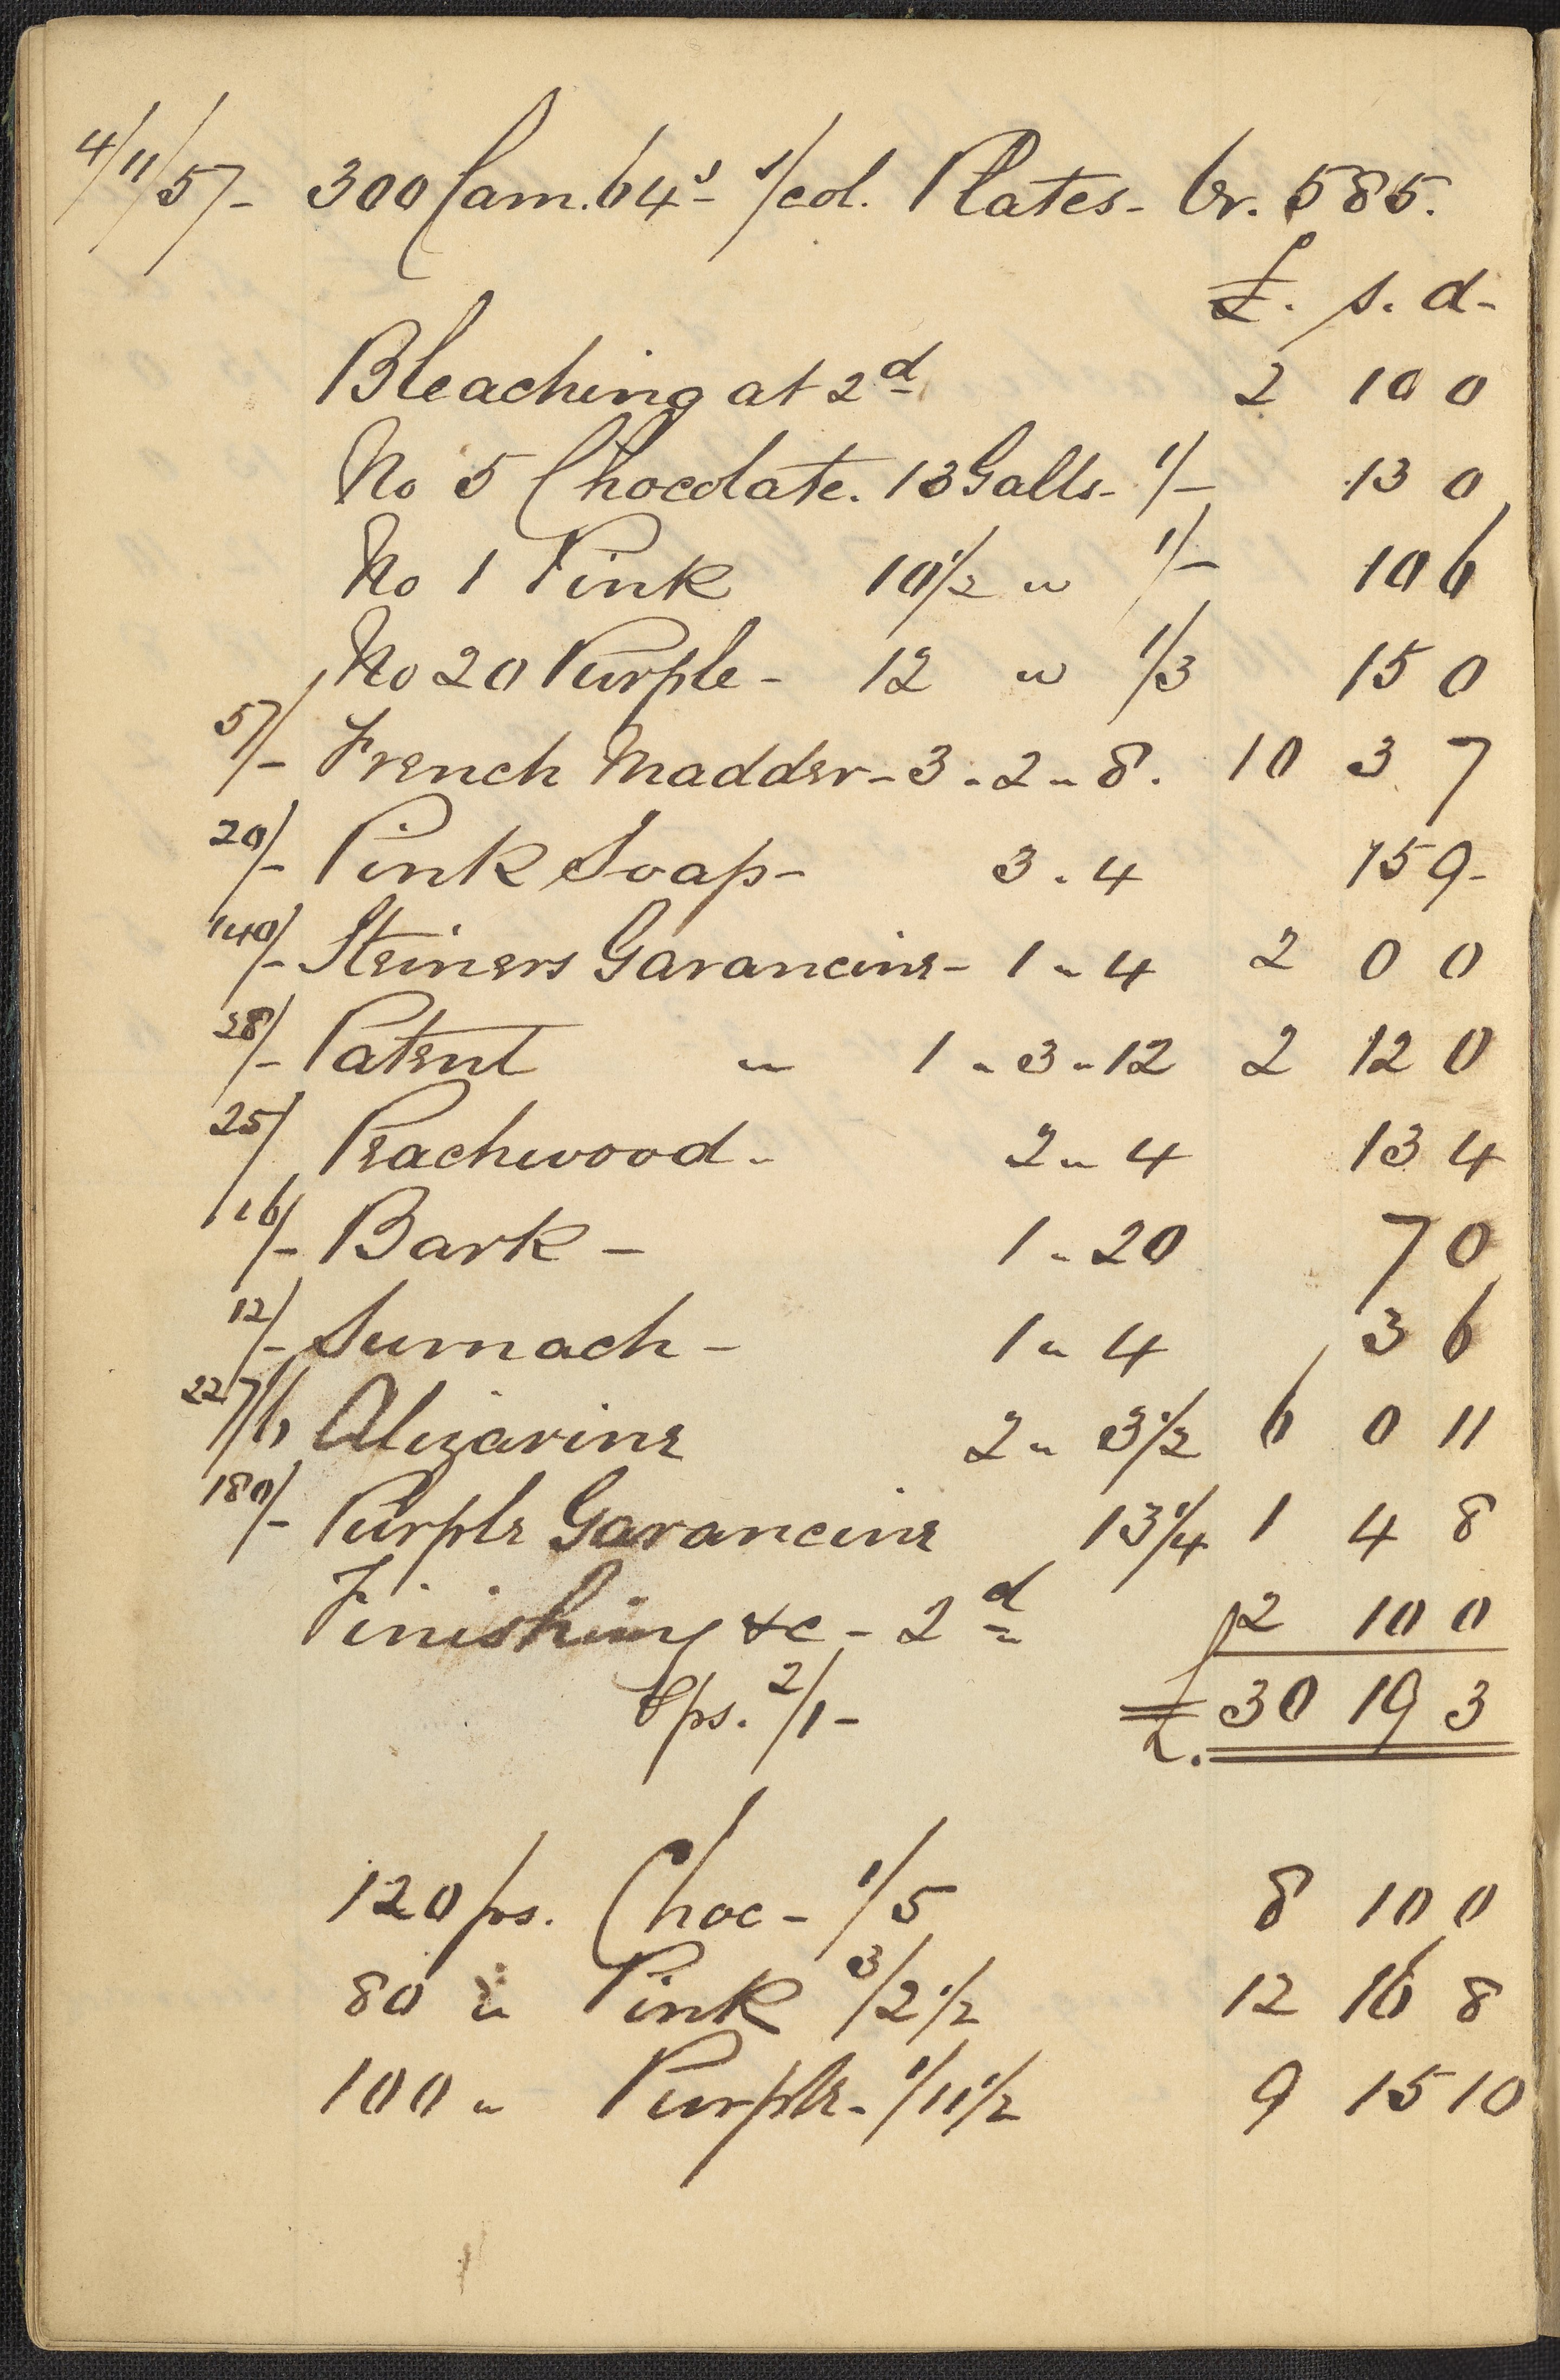 4/11/57- 300 Cam. 64s- 1/col. Plates- Gr. 585.
£. s. d-
Bleaching at 2d 2 10 0
No 5 Chocolate. 13 Galls- 1/- 13 0
No 1 Pink 10 1/2 " 1/- 10 6
No 20 Purple- 12 " 1/3 15 0
57/- French Madder- 3-2-8. 10 3 7
20/- Pink Soap- 3-4 15 9-
140/- Steiners Garancine- 1-4 2 0 0
28/- Patent " 1-3-12 2 12 0
25/ Peachwood- 2-4 13 4
16/- Bark- 1-20 7 0
12/- Sumach- 1-4 3 6
227/6 Alizarine 2-3 1/2 6 0 11
180/- Purple Garancine 13 1/4 1 4 8
Finishing &c- 2d 2 10 0
ps. 2/1- £. 30 19 3
120 ps. Choc- 1/5 8 10 0
80 " Pink 3/2 1/2 12 16 8
100 " Purple- 1/11 1/2 9 15 10